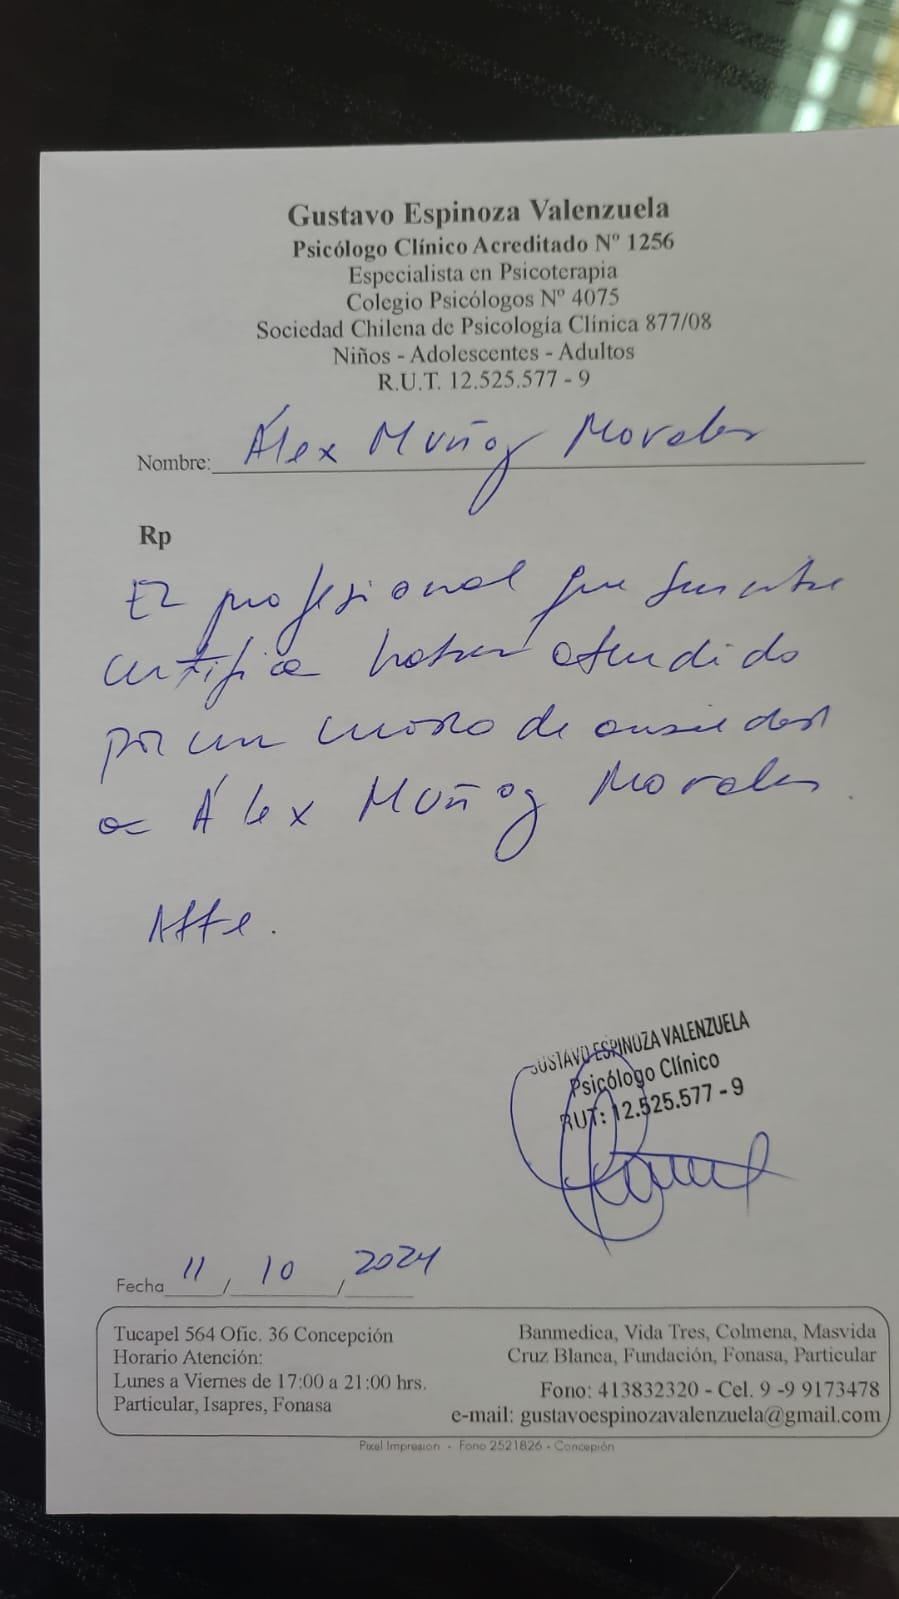 Gustavo Espinoza Valenzuela
Psicólogo Clínico Acreditado Nº 1256
Especialista en Psicoterapia
Colegio Psicólogos Nº 4075
Sociedad Chilena de Psicología Clínica 877/08
Niños - Adolescentes - Adultos
R.U.T. 12.525.577 - 9
Nombre: Álex Muñoz Morales
Rp
El profesional que suscribe
certifica haber atendido
por un cuadro de ansiedad
a Álex Muñoz Morales.
Atte.
GUSTAVO ESPINOZA VALENZUELA
Psicólogo Clínico
RUT: 12.525.577 - 9
Fecha 11 / 10 / 2024
Tucapel 564 Ofic. 36 Concepción
Horario Atención:
Lunes a Viernes de 17:00 a 21:00 hrs.
Particular, Isapres, Fonasa
Banmedica, Vida Tres, Colmena, Masvida
Cruz Blanca, Fundación, Fonasa, Particular
Fono: 413832320 - Cel. 9 -9 9173478
e-mail: gustavoespinozavalenzuela@gmail.com
Pixel Impresion - Fono 2521826 - Concepión